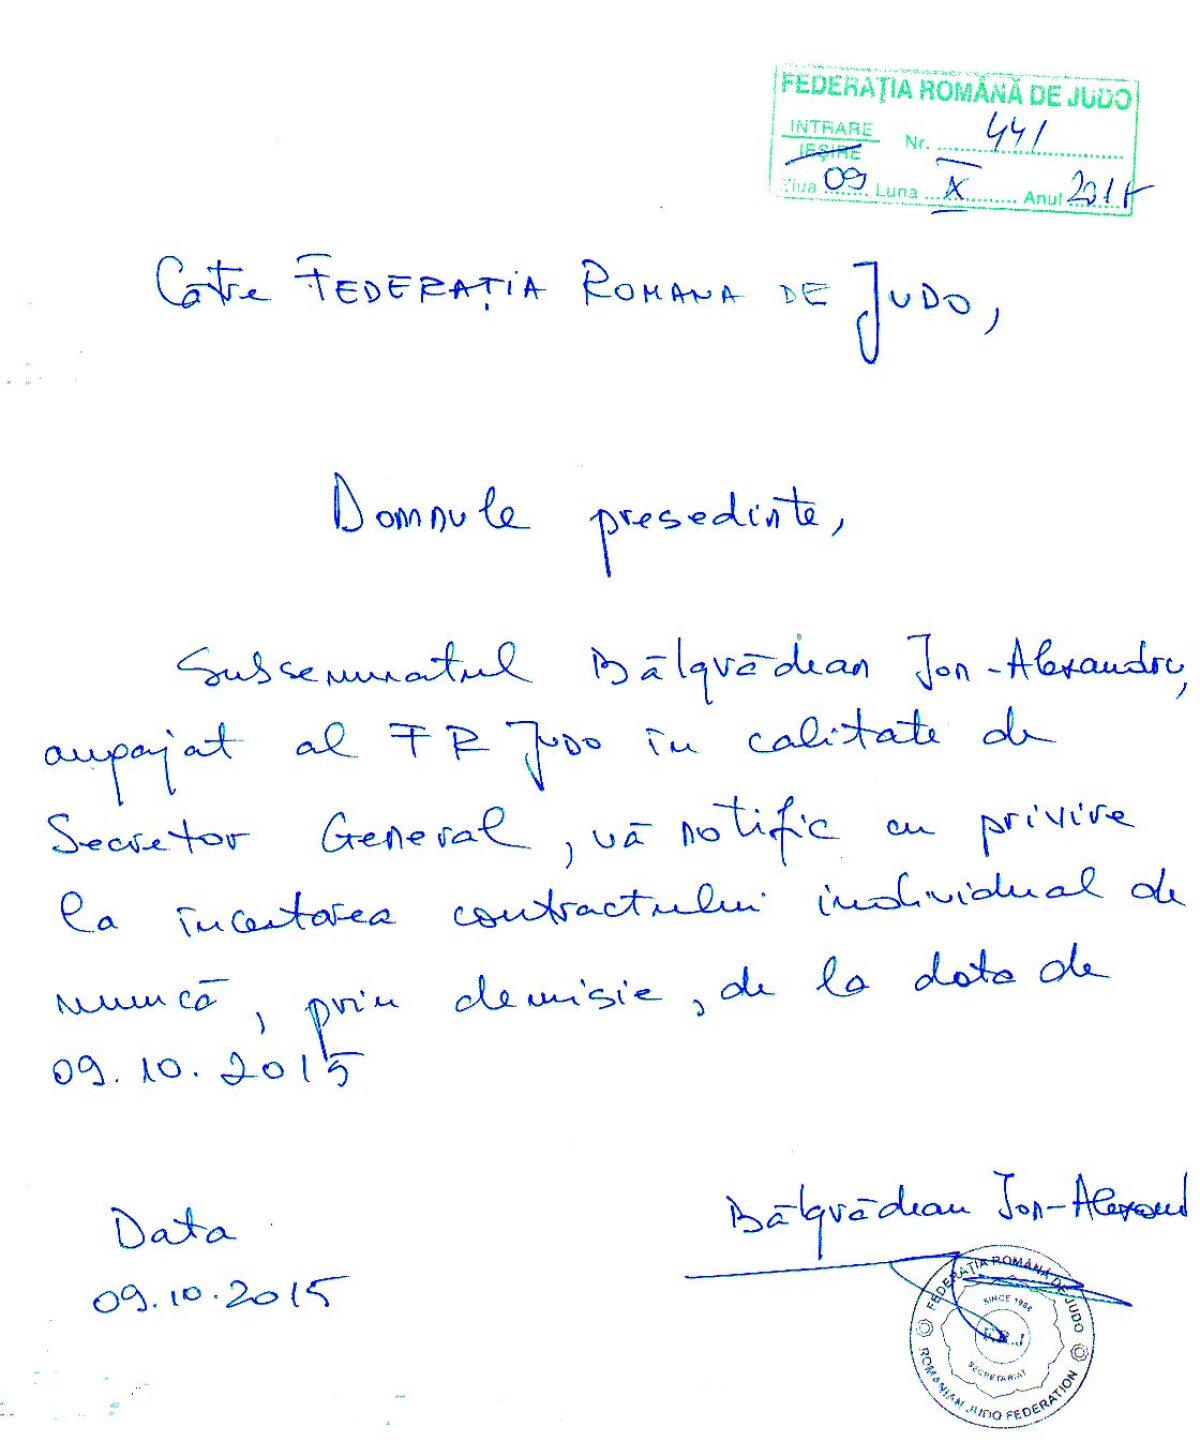 FEDERAȚIA ROMÂNĂ DE JUDO
INTRARE
IEȘIRE
Nr. 441
Ziua 09 Luna X Anul 2015
Catre FEDERAȚIA ROMANA DE JUDO,
Domnule presedinte,
Subsemnatul Bălqvădean Ion-Alexandru,
angajat al FR JUDO în calitate de
Secretar General, vă notific cu privire
la încetarea contractului individual de
muncă, prin demisie, de la data de
09.10.2015
Data
09.10.2015
Bălqvădean Ion-Alexand
FEDERAȚIA ROMÂNĂ DE JUDO
SINCE 1968
F.R.J
SECRETARIAT
ROMANIAN JUDO FEDERATION